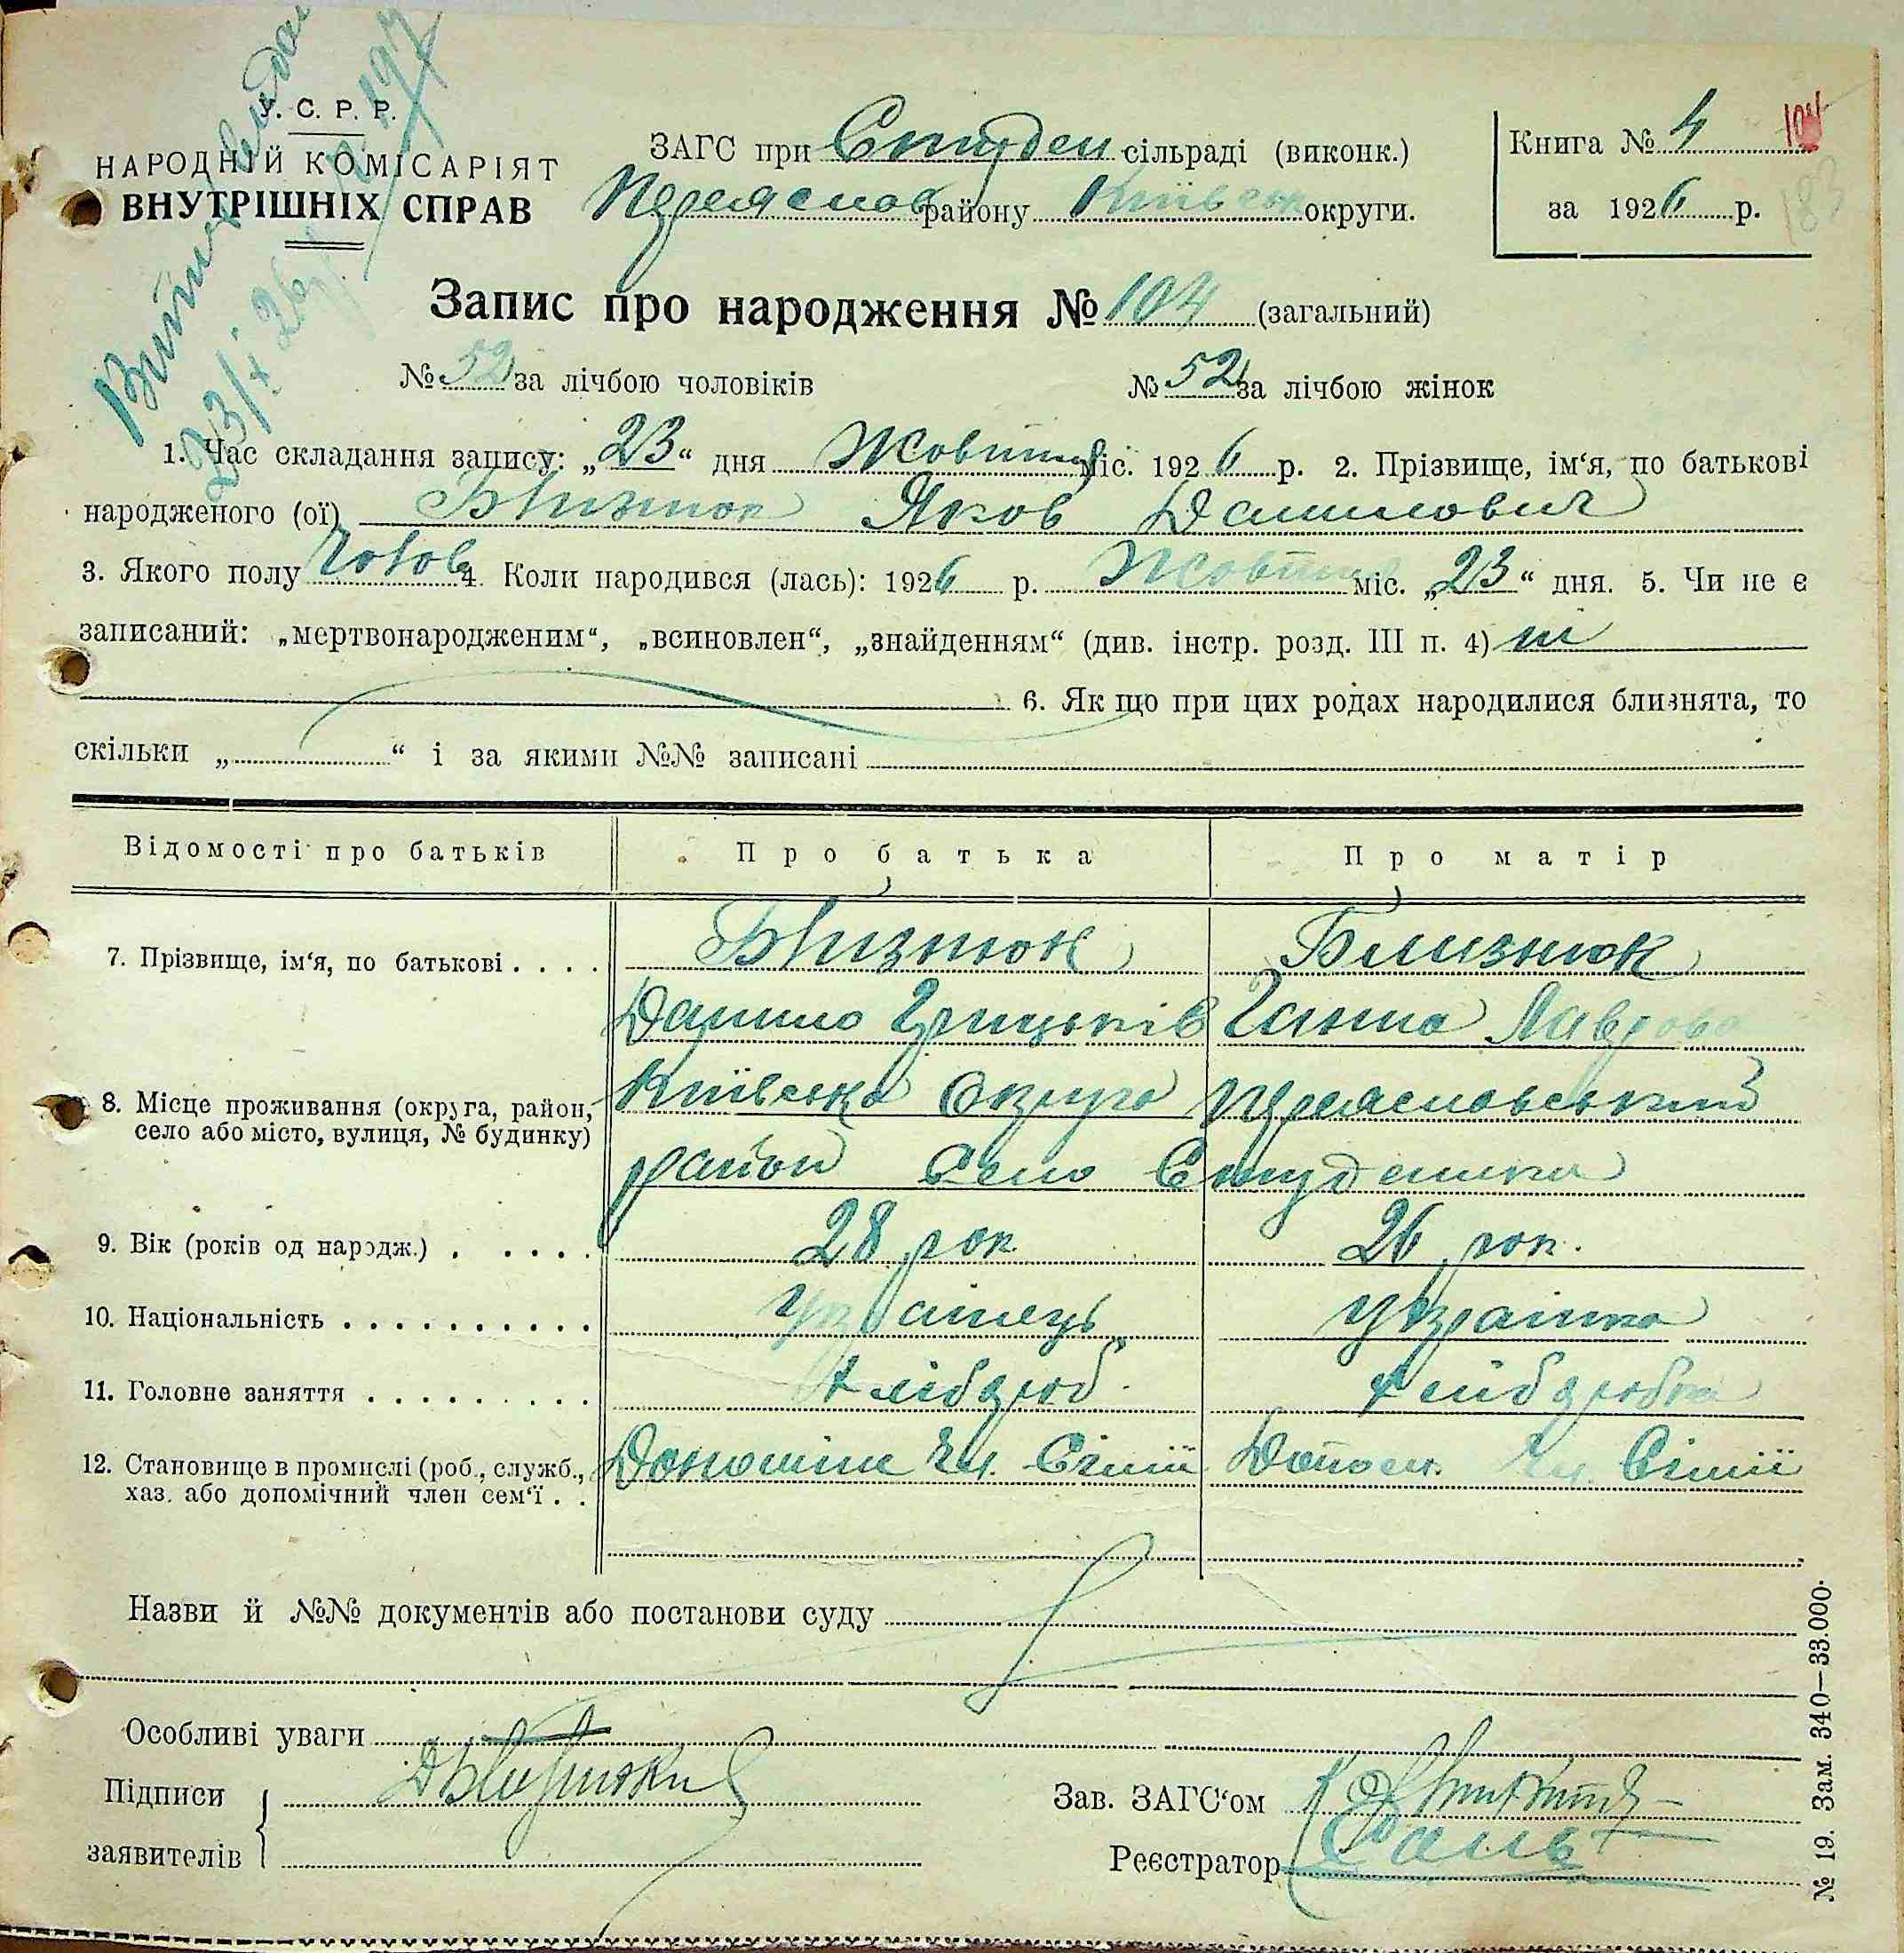 У. С. Р. Р.
НАРОДНІЙ КОМІСАРІЯТ
ВНУТРІШНІХ СПРАВ
ЗАГС при Студен сільраді (виконк.)
Переяслов району Київськ округи.
Книга № 4
104
за 1926 р.
183
Запис про народження № 104 (загальний)
№ 52 за лічбою чоловіків № 52 за лічбою жінок
1. Час складання запису: „23“ дня Жовтня міс. 1926 р. 2. Прізвище, ім‘я, по батькові
народженого (ої) Близнюк Яков Данилович
3. Якого полу Чолов 4. Коли народився (лась): 1926 р. Жовтня міс. „23“ дня. 5. Чи не є
записаний: „мертвонародженим“, „всиновлен“, „знайденням“ (див. інстр. розд. III п. 4) ні
6. Як що при цих родах народилися близнята, то
скільки „ “ і за якими №№ записані
Відомості про батьків Про батька Про матір
7. Прізвище, ім‘я, по батькові . . . . Близнюк Близнюк
Данило Грицьків Ганна Лаврова
8. Місце проживання (округа, район, село або місто, вулиця, № будинку) Київська Округа Переясловський
район Село Студеники
9. Вік (років од народж.) . . . . . 28 рок. 26 рок.
10. Національність . . . . . . . . . . Українець Українка
11. Головне заняття . . . . . . . . . Хлібороб. Хліборобка
12. Становище в промислі (роб., служб., хаз. або допомічний член сем‘ї . . Чл. Сімії Чл. Сімії
Назви й №№ документів або постанови суду
Особливі уваги
Підписи
заявителів
Зав. ЗАГС‘ом
Реєстратор
№ 19. Зам. 340—33.000.